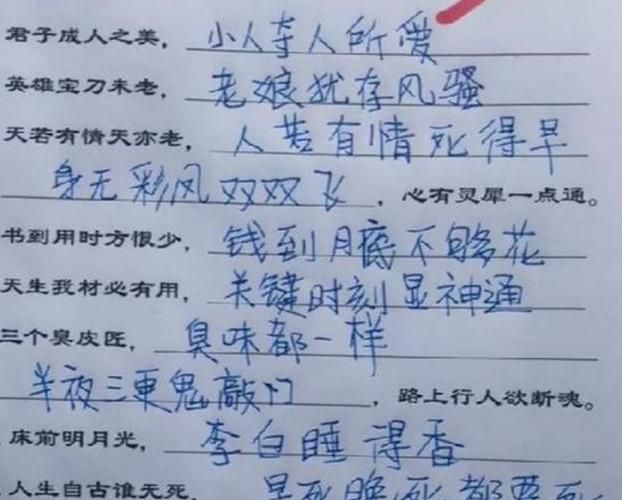 君子成人之美，小人夺人所爱
英雄宝刀未老，老娘犹存风骚
天若有情天亦老，人若有情死得早
身无彩凤双双飞，心有灵犀一点通。
书到用时方恨少，钱到月底不够花
天生我材必有用，关键时刻显神通
三个臭皮匠，臭味都一样
半夜三更鬼敲门，路上行人欲断魂。
床前明月光，李白睡得香
人生自古谁无死，早死晚死都要死